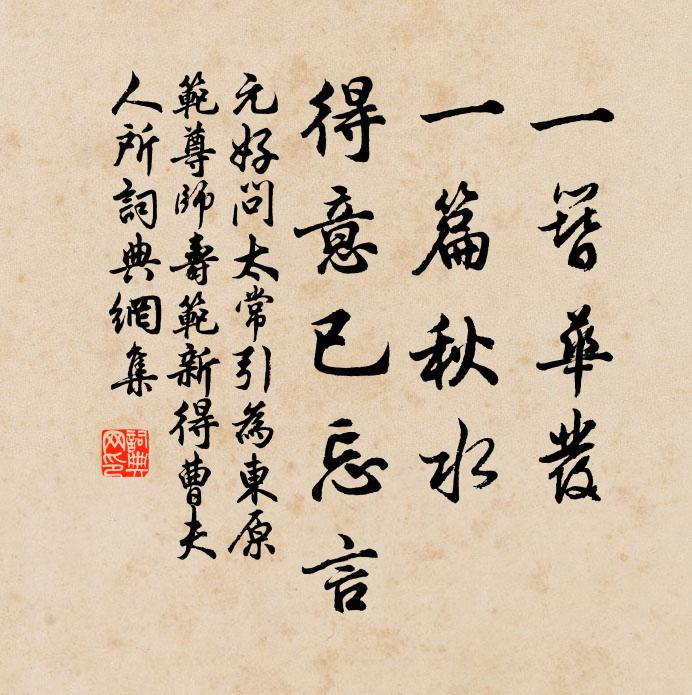 一簪華髮
一篇秋水
得意已忘言
元好問太常引為東原
範尊師壽範新得曹夫
人所詞典網集
詞典网印